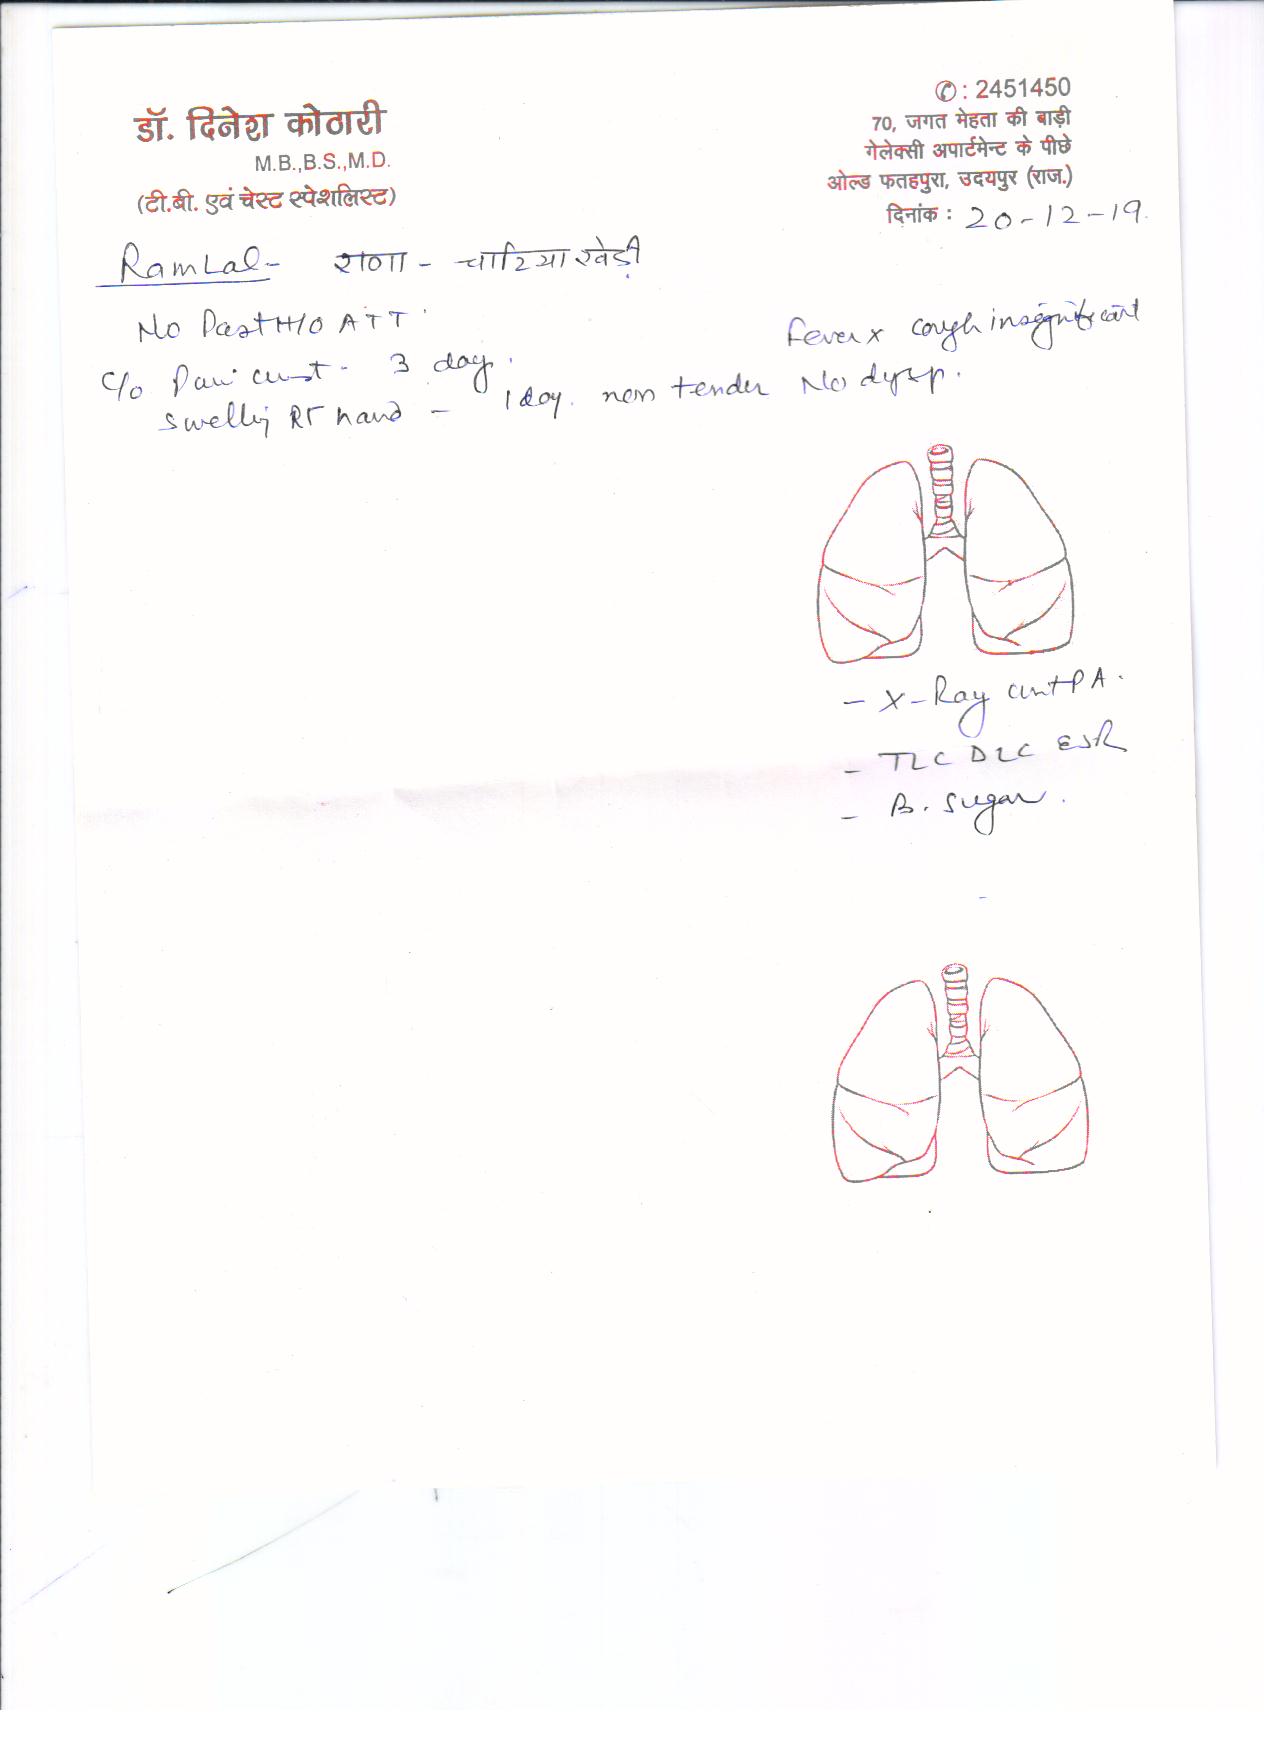 डॉ. दिनेश कोठारी
M.B.,B.S.,M.D.
(टी.बी. एवं चेस्ट स्पेशलिस्ट)
✆: 2451450
70, जगत मेहता की बाड़ी
गेलेक्सी अपार्टमेन्ट के पीछे
ओल्ड फतहपुरा, उदयपुर (राज.)
दिनांक : 20-12-19.
RamLal- राणा - चारियाखेडी
No Past H/O ATT
Fever x cough insignificant
C/o Pain - 3 day.
Swelling RT hand - 1 day. non tender No dysp.
- X-Ray PA.
- TLC DLC ESR
- B. Sugar.